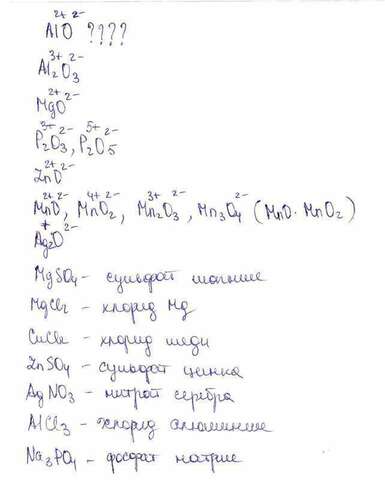 AlO ????
2+ 2-
Al₂O₃
3+ 2-
MgO
2+ 2-
P₂O₃, P₂O₅
3+ 2- 5+ 2-
ZnO
2+ 2-
MnO, MnO₂, Mn₂O₃, Mn₃O₄ (MnO·MnO₂)
2+ 2- 4+ 2- 3+ 2- 2-
Ag₂O
+ 2-
MgSO₄ – сульфат магние
MgCl₂ – хлорид Mg
CuCl₂ – хлорид меди
ZnSO₄ – сульфат цинка
AgNO₃ – нитрат серебра
AlCl₃ – хлорид алюминие
Na₃PO₄ – фосфат натрие